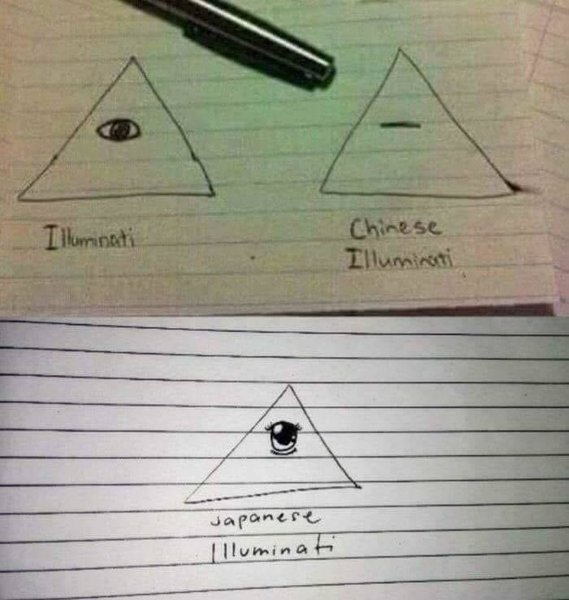 Illuminati
Chinese
Illuminati
Japanese
Illuminati